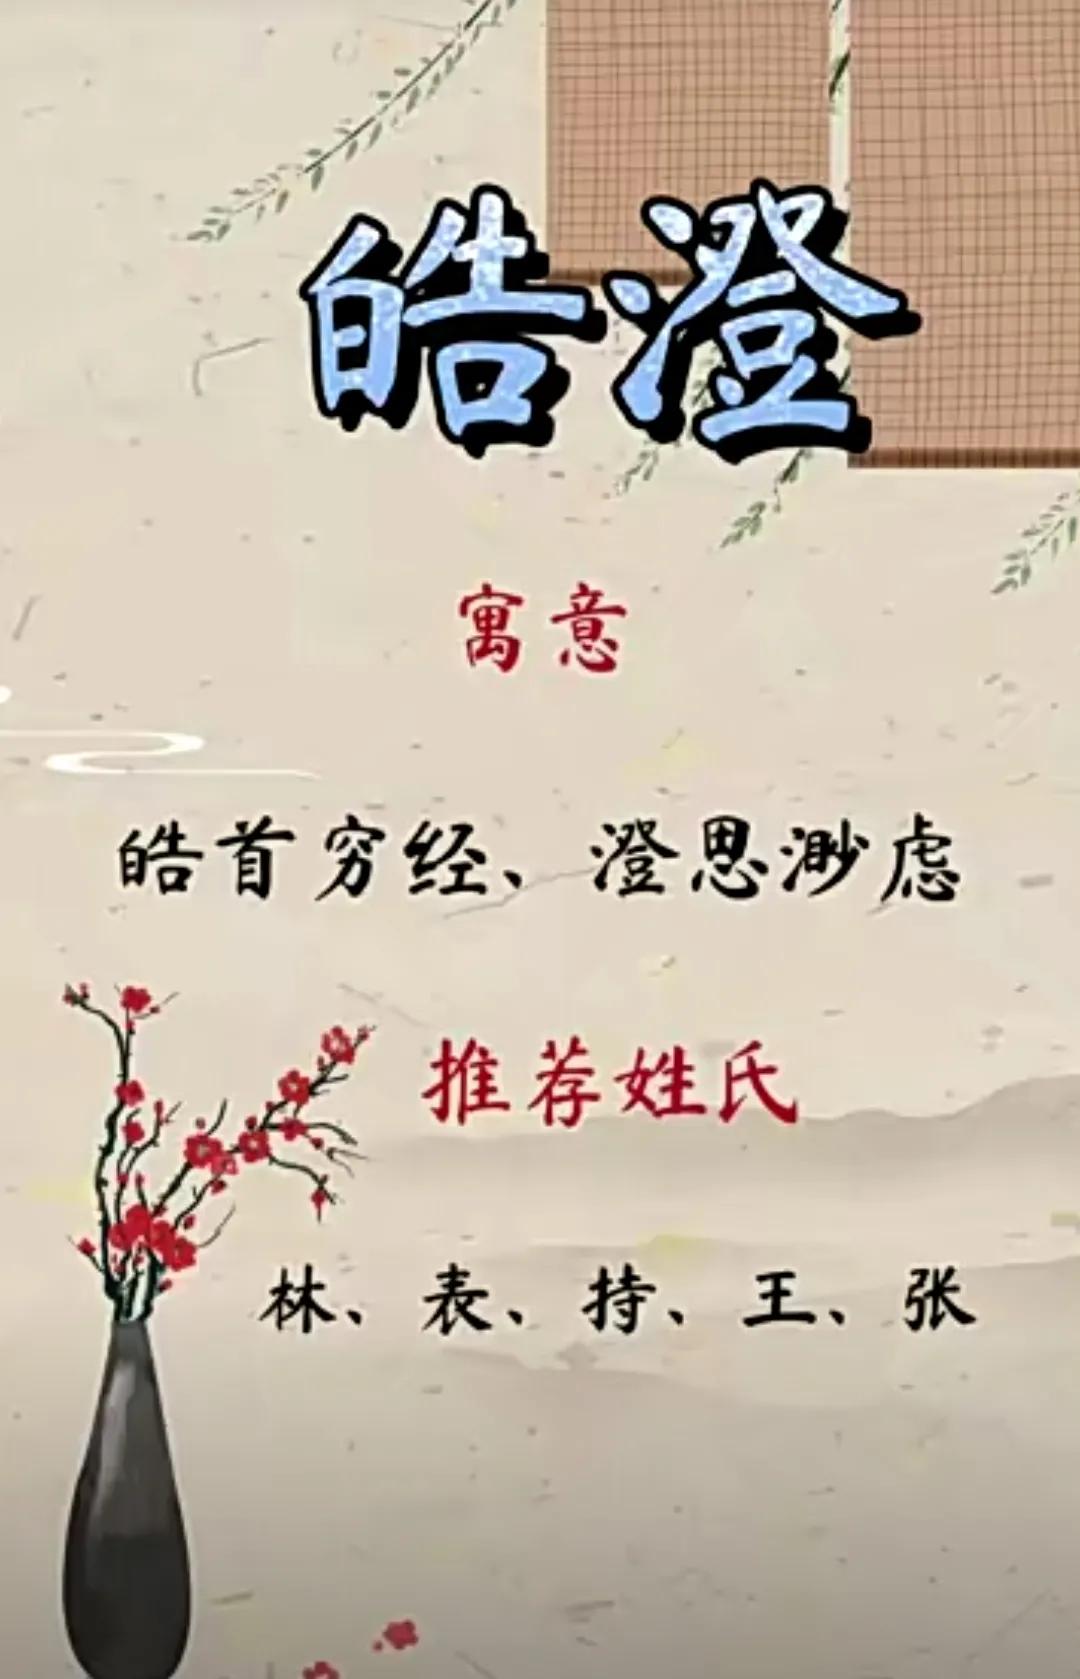 皓澄
寓意
皓首穷经、澄思渺虑
推荐姓氏
林、表、持、王、张